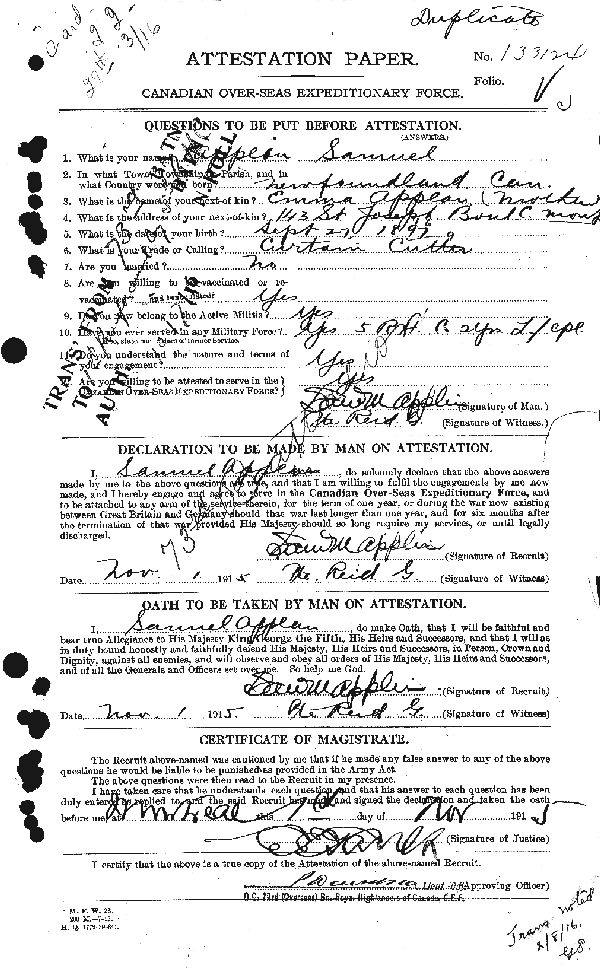 Duplicate
Card
ATTESTATION PAPER.
No. 133124
Folio.
CANADIAN OVER-SEAS EXPEDITIONARY FORCE.
QUESTIONS TO BE PUT BEFORE ATTESTATION.
(ANSWERS)
1. What is your name? Applin Samuel
2. In what Town, Township or Parish, and in
what Country were you born? Newfoundland Can.
3. What is the name of your next-of-kin? Emma Applan (Mother
4. What is the address of your next-of-kin? 143 St Joseph Boul
5. What is the date of your birth? Sept 27 1897
6. What is your Trade or Calling? Curtain Cutter
7. Are you married? No
8. Are you willing to be vaccinated or re-
vaccinated? Yes
9. Do you now belong to the Active Militia? Yes
10. Have you ever served in any Military Force? Yes 5 R.H. C. L/cpl
11. Do you understand the nature and terms of
your engagement? Yes
12. Are you willing to be attested to serve in the
CANADIAN OVER-SEAS EXPEDITIONARY FORCE? Yes
TRANS' FROM 73RD BATTN
ROLL
Applin (Signature of Man.)
Reid G (Signature of Witness.)
DECLARATION TO BE MADE BY MAN ON ATTESTATION.
I, Samuel Applan, do solemnly declare that the above answers
made by me to the above questions are true, and that I am willing to fulfil the engagements by me now
made, and I hereby engage and agree to serve in the Canadian Over-Seas Expeditionary Force, and
to be attached to any arm of the service therein, for the term of one year, or during the war now existing
between Great Britain and Germany should that war last longer than one year, and for six months after
the termination of that war provided His Majesty should so long require my services, or until legally
discharged.
Applin (Signature of Recruit)
Date Nov. 1 1915 Reid G (Signature of Witness)
OATH TO BE TAKEN BY MAN ON ATTESTATION.
I, Samuel Applan, do make Oath, that I will be faithful and
bear true Allegiance to His Majesty King George the Fifth, His Heirs and Successors, and that I will as
in duty bound honestly and faithfully defend His Majesty, His Heirs and Successors, in Person, Crown and
Dignity, against all enemies, and will observe and obey all orders of His Majesty, His Heirs and Successors,
and of all the Generals and Officers set over me. So help me God.
Applin (Signature of Recruit)
Date Nov. 1 1915. Reid G (Signature of Witness)
CERTIFICATE OF MAGISTRATE.
The Recruit above-named was cautioned by me that if he made any false answer to any of the above
questions he would be liable to be punished as provided in the Army Act.
The above questions were then read to the Recruit in my presence.
I have taken care that he understands each question, and that his answer to each question has been
duly entered as replied to, and the said Recruit has made and signed the declaration and taken the oath
before me, at Montreal this 1st day of Nov 1915
(Signature of Justice)
I certify that the above is a true copy of the Attestation of the above-named Recruit.
Lieut. Col (Approving Officer)
O.C. 73rd (Overseas) Bn. Royal Highlanders of Canada C.E.F.
M. F. W. 23.
Trans noted
2/8/16